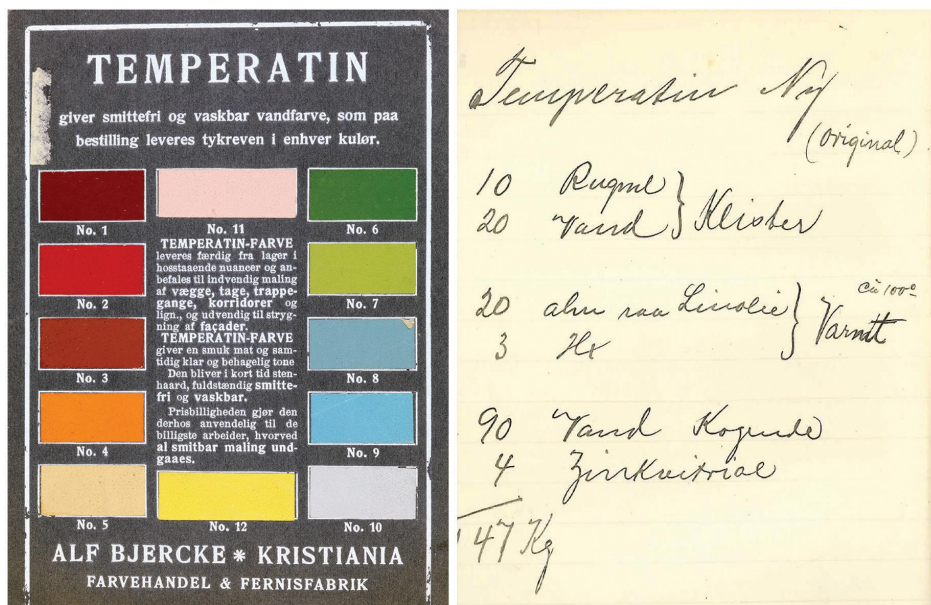 TEMPERATIN
giver smittefri og vaskbar vandfarve, som paa
bestilling leveres tykreven i enhver kulør.
No. 1
No. 11
No. 6
No. 2
No. 7
No. 3
No. 8
No. 4
No. 9
No. 5
No. 12
No. 10
TEMPERATIN-FARVE
leveres færdig fra lager i
hosstaaende nuancer og an-
befales til indvendig maling
af vægge, tage, trappe-
gange, korridorer og
lign., og udvendig til stryg-
ning af façader.
TEMPERATIN-FARVE
giver en smuk mat og sam-
tidig klar og behagelig tone
Den bliver i kort tid sten-
haard, fuldstændig smitte-
fri og vaskbar.
Prisbilligheden gjør den
derhos anvendelig til de
billigste arbeider, hvorved
al smitbar maling und-
gaaes.
ALF BJERCKE * KRISTIANIA
FARVEHANDEL & FERNISFABRIK
Temperatin Ny
(original)
10 Rugml
20 Vand } Klister
20 alm raa Linolie
3 Hx } Varmt
ca 100°
90 Vand Kogende
4 Zinkvitriol
147 Kg